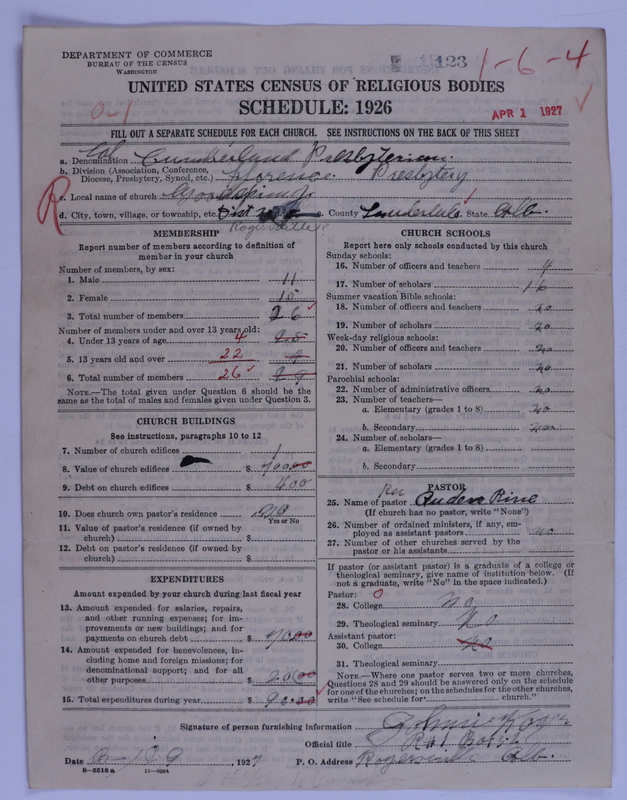 DEPARTMENT OF COMMERCE
BUREAU OF THE CENSUS
WASHINGTON
123
1-6-4
UNITED STATES CENSUS OF RELIGIOUS BODIES
SCHEDULE: 1926
0-1
APR 1 1927
FILL OUT A SEPARATE SCHEDULE FOR EACH CHURCH. SEE INSTRUCTIONS ON THE BACK OF THIS SHEET
Col
a. Denomination Cumberland Presbyterian
b. Division (Association, Conference, Diocese, Presbytery, Synod, etc.) Florence Presbytery
R
c. Local name of church
d. City, town, village, or township, etc. Dist County Lauderdale State Alb.
Rogersville
MEMBERSHIP
Report number of members according to definition of
member in your church
Number of members, by sex:
1. Male 11
2. Female 15
3. Total number of members 26
Number of members under and over 13 years old:
4. Under 13 years of age 4
5. 13 years old and over 22
6. Total number of members 26
NOTE.—The total given under Question 6 should be the
same as the total of males and females given under Question 3.
CHURCH BUILDINGS
See instructions, paragraphs 10 to 12
7. Number of church edifices 1
8. Value of church edifices $
9. Debt on church edifices $ 400
10. Does church own pastor's residence no
Yes or No
11. Value of pastor's residence (if owned by
church) $
12. Debt on pastor's residence (if owned by
church) $
EXPENDITURES
Amount expended by your church during last fiscal year
13. Amount expended for salaries, repairs,
and other running expenses; for im-
provements or new buildings; and for
payments on church debt $ 70.00
14. Amount expended for benevolences, in-
cluding home and foreign missions; for
denominational support; and for all
other purposes $ 20.00
15. Total expenditures during year $ 90.00
CHURCH SCHOOLS
Report here only schools conducted by this church
Sunday schools:
16. Number of officers and teachers 4
17. Number of scholars 16
Summer vacation Bible schools:
18. Number of officers and teachers no
19. Number of scholars no
Week-day religious schools:
20. Number of officers and teachers no
21. Number of scholars no
Parochial schools:
22. Number of administrative officers no
23. Number of teachers—
a. Elementary (grades 1 to 8) no
b. Secondary no
24. Number of scholars—
a. Elementary (grades 1 to 8)
b. Secondary
PASTOR
Rev
25. Name of pastor
(If church has no pastor, write "None")
26. Number of ordained ministers, if any, em-
ployed as assistant pastors no
27. Number of other churches served by the
pastor or his assistants
If pastor (or assistant pastor) is a graduate of a college or
theological seminary, give name of institution below. (If
not a graduate, write "No" in the space indicated.)
Pastor: 0
28. College no
29. Theological seminary no
Assistant pastor:
30. College no
31. Theological seminary
NOTE.—Where one pastor serves two or more churches,
Questions 28 and 29 should be answered only on the schedule
for one of the churches; on the schedules for the other churches,
write "See schedule for church."
Signature of person furnishing information
Official title
Date , 1927 P. O. Address Rogersville Alb.
8—5518 a 11—9024